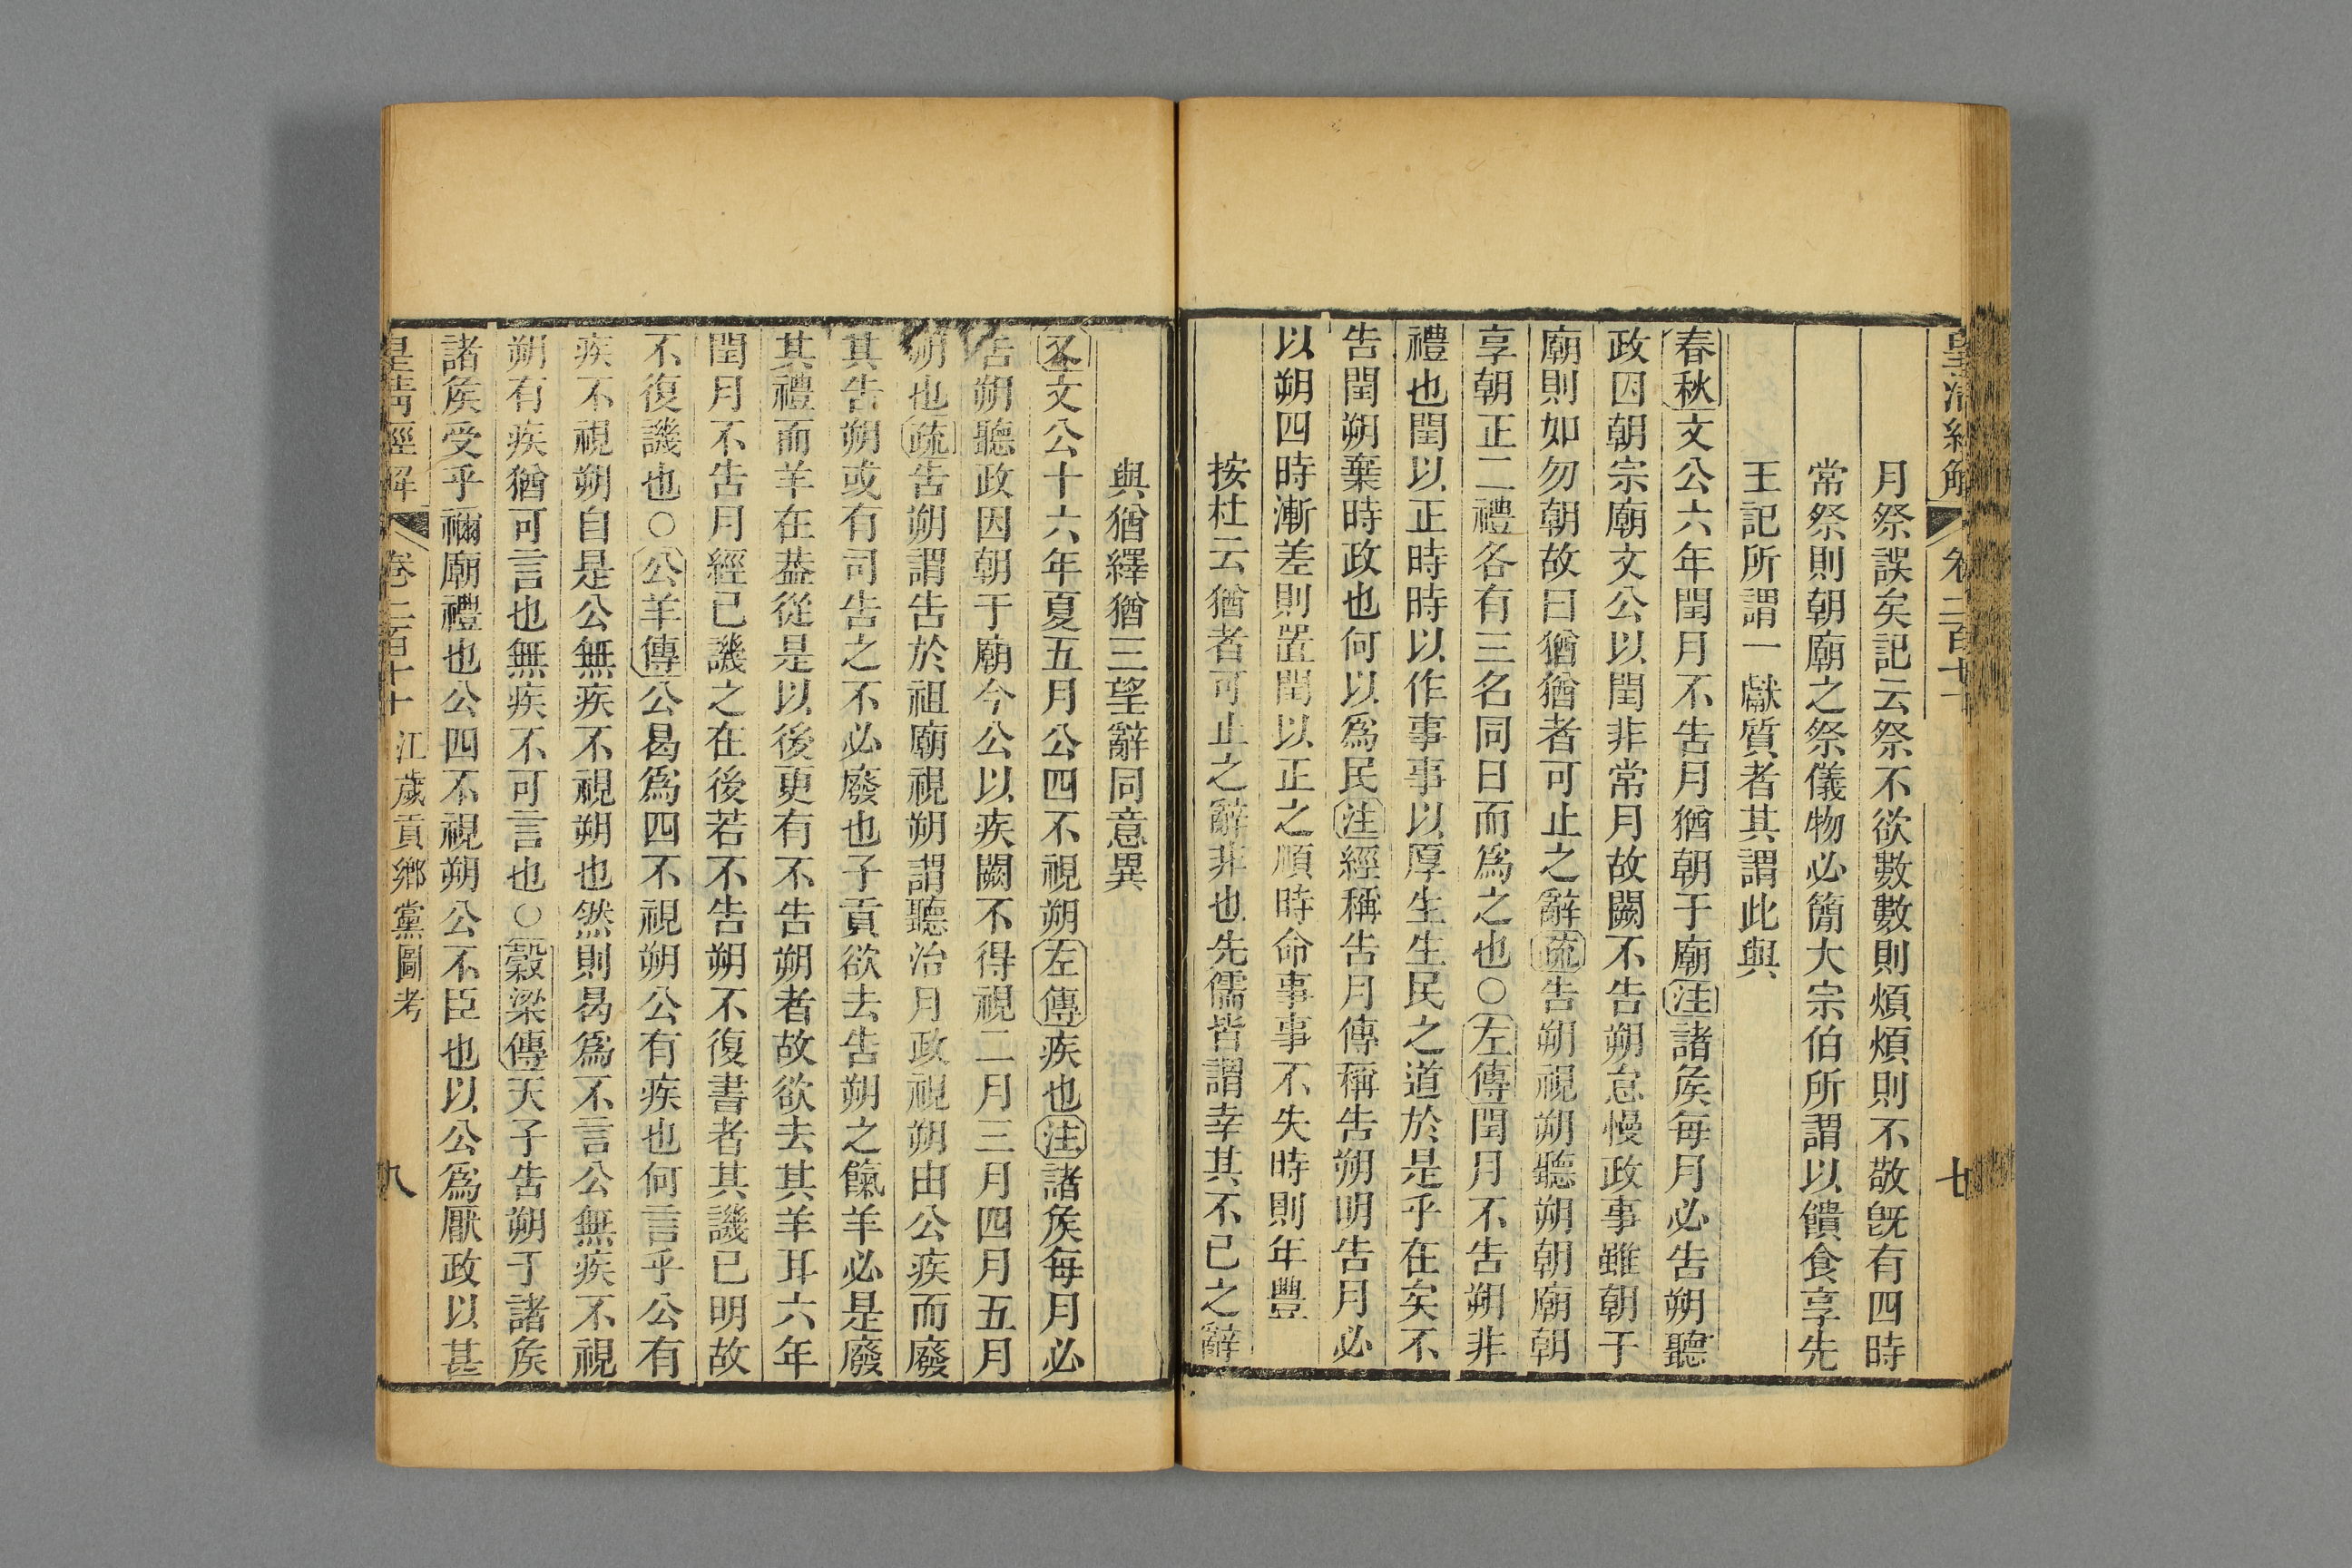 皇清經解 卷二百七十 七
月祭誤矣記云祭不欲數數則煩煩則不敬旣有四時
常祭則朝廟之祭儀物必簡大宗伯所謂以饋食享先
王記所謂一獻質者其謂此與
春秋文公六年閏月不告月猶朝于廟注諸矦每月必告朔聽
政因朝宗廟文公以閏非常月故闕不告朔怠慢政事雖朝于
廟則如勿朝故曰猶猶者可止之辭疏告朔視朔聽朔朝廟朝
享朝正二禮各有三名同日而爲之也○左傳閏月不告朔非
禮也閏以正時時以作事事以厚生生民之道於是乎在矣不
告閏朔棄時政也何以爲民注經稱告月傳稱告朔明告月必
以朔四時漸差則置閏以正之順時命事事不失時則年豐
按杜云猶者可止之辭非也先儒皆謂幸其不已之辭
與猶繹猶三望辭同意異
又文公十六年夏五月公四不視朔左傳疾也注諸矦每月必
告朔聽政因朝于廟今公以疾闕不得視二月三月四月五月
朔也疏告朔謂告於祖廟視朔謂聽治月政視朔由公疾而廢
其告朔或有司告之不必廢也子貢欲去告朔之餼羊必是廢
其禮而羊在葢從是以後更有不告朔者故欲去其羊耳六年
閏月不告月經已譏之在後若不告朔不復書者其譏已明故
不復譏也○公羊傳公曷爲四不視朔公有疾也何言乎公有
疾不視朔自是公無疾不視朔也然則曷爲不言公無疾不視
朔有疾猶可言也無疾不可言也○穀梁傳天子告朔于諸矦
諸矦受乎禰廟禮也公四不視朔公不臣也以公爲厭政以甚
皇清經解 卷二百七十 江歲貢鄉黨圖考 八